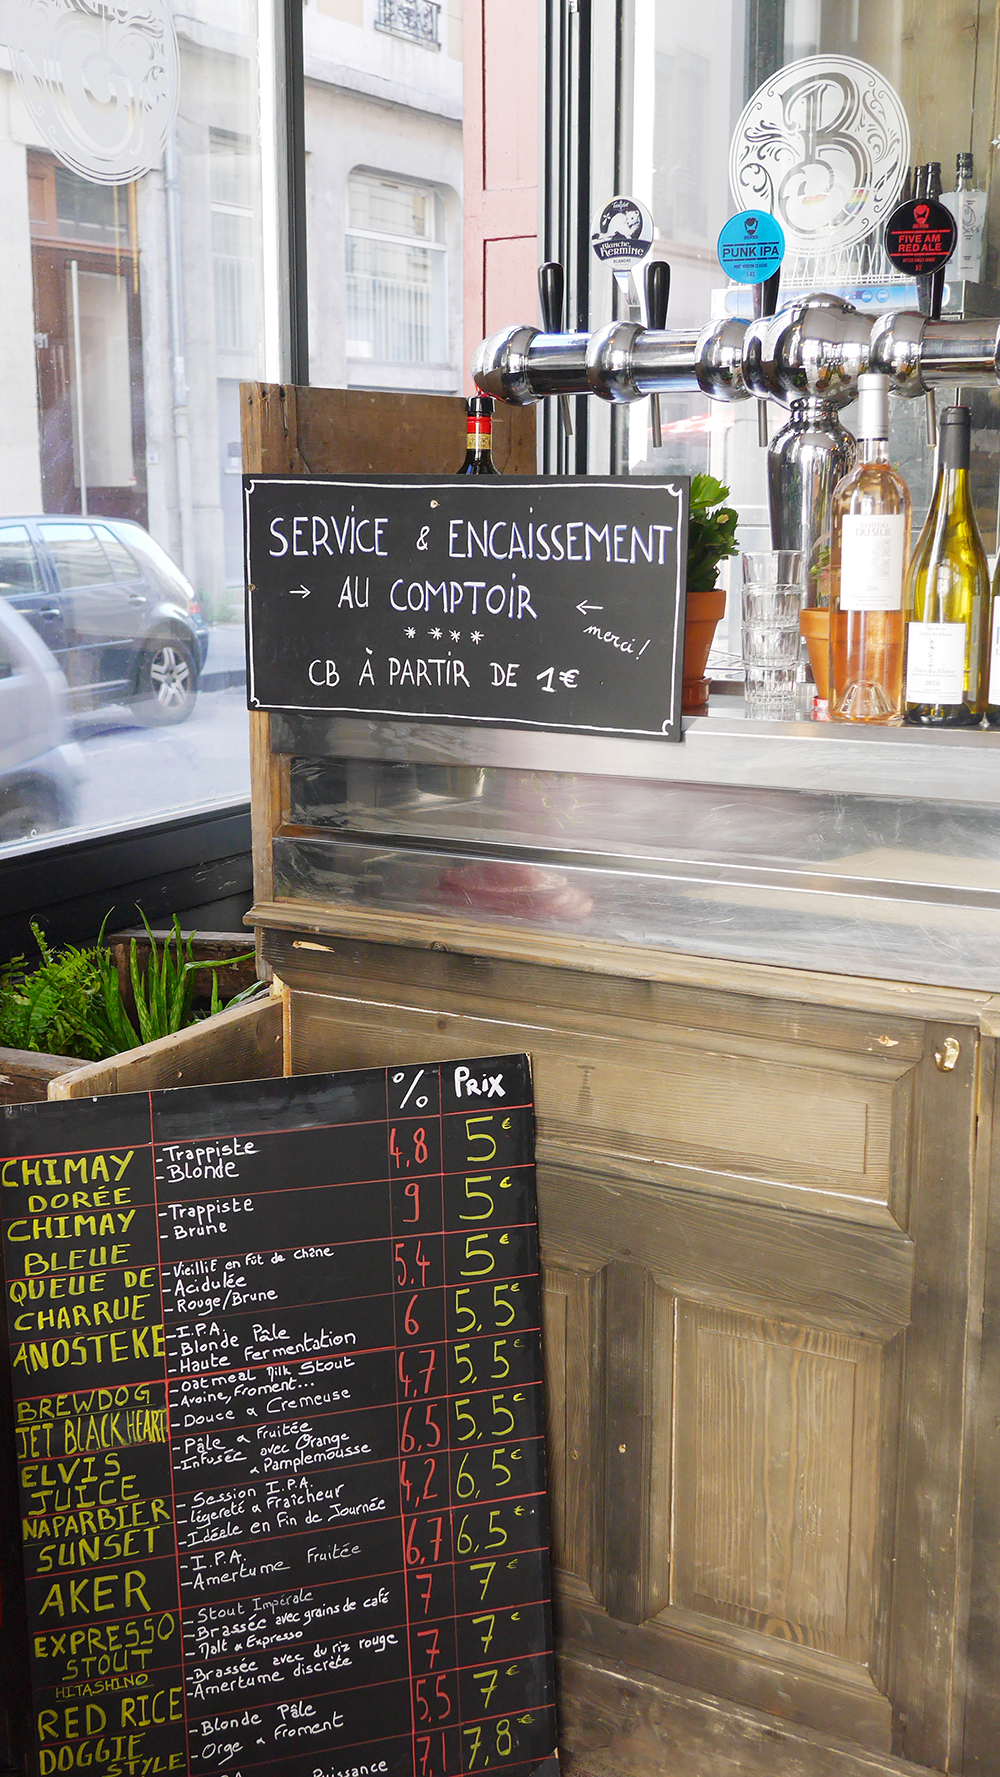 B
Blanche
Hermine
BLANCHE
PUNK IPA
FIVE AM
RED ALE
SERVICE & ENCAISSEMENT
→ AU COMPTOIR ←
merci!
****
CB À PARTIR DE 1€
CHATEAU
DU SEUIL
2016
% PRIX
CHIMAY DORÉE
-Trappiste
-Blonde
4,8 5€
CHIMAY BLEUE
-Trappiste
-Brune
9 5€
QUEUE DE CHARRUE
-Vieillie en Fût de chêne
-Acidulée
-Rouge/Brune
5.4 5€
ANOSTEKE
-I.P.A.
-Blonde Pâle
-Haute Fermentation
6 5,5€
BREWDOG
JET BLACK HEART
-Oatmeal Milk Stout
-Avoine, Froment...
-Douce & Cremeuse
4,7 5,5€
ELVIS JUICE
-Pâle & Fruitée
-Infusée avec Orange
& Pamplemousse
6,5 5,5€
NAPARBIER
SUNSET
-Session I.P.A.
-légereté & Fraîcheur
-Idéale en Fin de Journée
4,2 6,5€
AKER
-I.P.A.
-Amertume Fruitée
6,7 6,5€
EXPRESSO
STOUT
-Stout Impérale
-Brassée avec grains de café
-Malt & Expresso
7 7€
HITASHINO
RED RICE
-Brassée avec du riz rouge
-Amertume discrète
7 7€
DOGGIE
STYLE
-Blonde Pâle
-Orge & Froment
5,5 7€
Puissance
7,1 7,8€